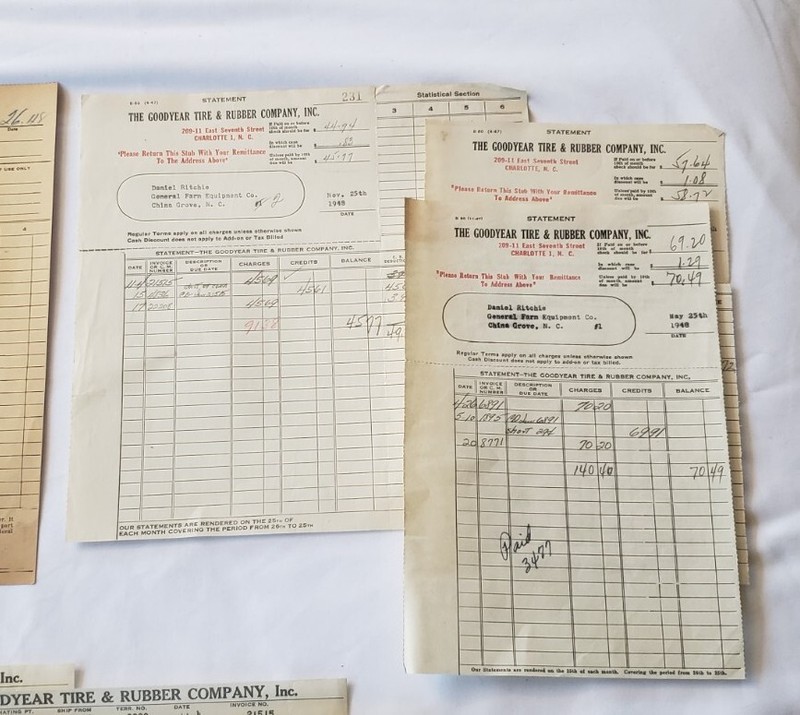 26.118
Date
USE ONLY
4
STATEMENT
231
THE GOODYEAR TIRE & RUBBER COMPANY, INC.
209-11 East Seventh Street
CHARLOTTE 1, N. C.
*Please Return This Stub With Your Remittance
To The Address Above*
If Paid on or before
10th of month,
check should be for $ 44.94
In which case
discount will be $ .83
Unless paid by 10th
of month, amount
due will be $ 45.77
Daniel Ritchie
General Farm Equipment Co.
China Grove, N. C.
#2
Nov. 25th
1948
DATE
Regular Terms apply on all charges unless otherwise shown
Cash Discount does not apply to Add-on or Tax Billed
STATEMENT—THE GOODYEAR TIRE & RUBBER COMPANY, INC.
DATE
INVOICE OR C. M. NUMBER
DESCRIPTION OR DUE DATE
CHARGES
CREDITS
BALANCE
4569
4561
4569
45 77
OUR STATEMENTS ARE RENDERED ON THE 25TH OF
EACH MONTH COVERING THE PERIOD FROM 26TH TO 25TH
Statistical Section
3 4 5 6
STATEMENT
THE GOODYEAR TIRE & RUBBER COMPANY, INC.
209-11 East Seventh Street
CHARLOTTE, N. C.
*Please Return This Stub With Your Remittance
To Address Above*
If Paid on or before
10th of month
check should be for $ 57.64
In which case
discount will be $ 1.08
Unless paid by 10th
of month, amount
due will be $ 58.72
STATEMENT
THE GOODYEAR TIRE & RUBBER COMPANY, INC.
209-11 East Seventh Street
CHARLOTTE 1, N. C.
*Please Return This Stub With Your Remittance
To Address Above*
If Paid on or before
10th of month
check should be for $ 69.20
In which case
discount will be $ 1.29
Unless paid by 10th
of month, amount
due will be $ 70.49
Daniel Ritchie
General Farm Equipment Co.
China Grove, N. C. #1
May 25th
1948
DATE
Regular Terms apply on all charges unless otherwise shown
Cash Discount does not apply to add-on or tax billed.
STATEMENT—THE GOODYEAR TIRE & RUBBER COMPANY, INC.
DATE
INVOICE OR C. M. NUMBER
DESCRIPTION OR DUE DATE
CHARGES
CREDITS
BALANCE
4/26 6891 70 20
5-10 1895 6891
short 69 91
20 8771 70 20
140 40 70 49
Paid
3477
Our Statements are rendered on the 25th of each month. Covering the period from 26th to 25th.
Inc.
DYEAR TIRE & RUBBER COMPANY, Inc.
RATING PT. SHIP FROM TERR. NO. DATE INVOICE NO.
21515